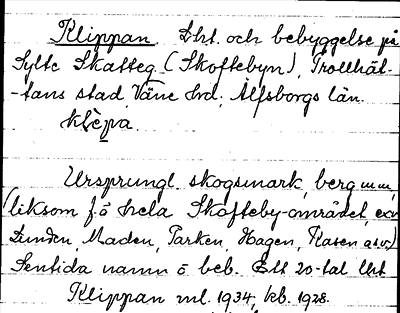 Klippan. Lht. och bebyggelse på
Sylte Skatteg (Skoftebyn), Trollhät-
-tans stad, Väne hd, Älfsborgs län.
klepa
Ursprungl. skogsmark, berg m.m,
(liksom f.ö hela Skofteby-området, exv
Lunden, Maden, Parken, Hagen, Kasen osv.)
Sentida namn o beb. Ett 20-tal lht
Klippan ml. 1934, kb. 1928.